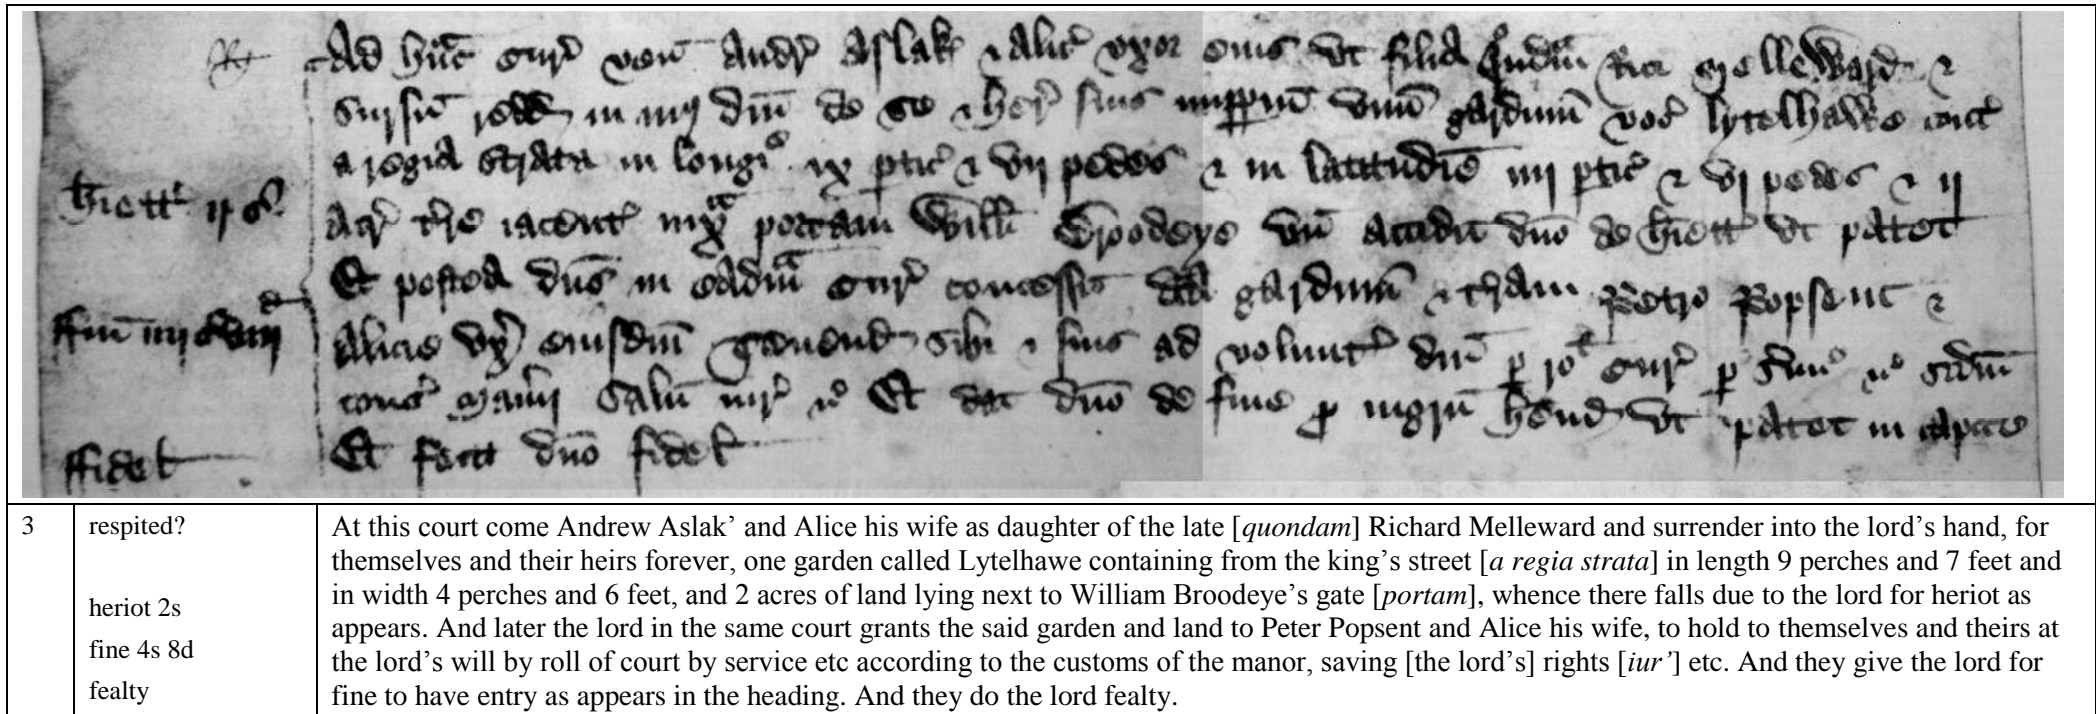 Ad hanc cur' ven' Andr' Aslak' & Alic' uxor eius ut filia quondam Ric' Melleward &
sursu' redd' in man' dni de se & her' suis imp'pm unu' gardinum voc' Lytelhawe cont'
a regia strata in longi' ix p'tic' & vij pedes & in latitudine iiij p'tic' & vj pedes & ij
acr' t're iacent' iuxta portam Will' Broodeye un' accidit dno de heriett' ut patet
Et postea dns in eadem cur' concessit d'ca gardinum & t'ram Petro Popsent &
Alicie ux' eiusdem Tenend' sibi & suis ad volunt' dni p' ro' cur' p' s'vic' &c' scdm
cons' Man'ij Salu' iur' &c' Et dat dno de fine p' ingru' hend' ut patet in capite
Et fecit dno fidel'
heriett' ij s'
ffin' iiij s viij d
ffidel'
3
respited?
heriot 2s
fine 4s 8d
fealty
At this court come Andrew Aslak’ and Alice his wife as daughter of the late [quondam] Richard Melleward and surrender into the lord’s hand, for
themselves and their heirs forever, one garden called Lytelhawe containing from the king’s street [a regia strata] in length 9 perches and 7 feet and
in width 4 perches and 6 feet, and 2 acres of land lying next to William Broodeye’s gate [portam], whence there falls due to the lord for heriot as
appears. And later the lord in the same court grants the said garden and land to Peter Popsent and Alice his wife, to hold to themselves and theirs at
the lord’s will by roll of court by service etc according to the customs of the manor, saving [the lord’s] rights [iur’] etc. And they give the lord for
fine to have entry as appears in the heading. And they do the lord fealty.